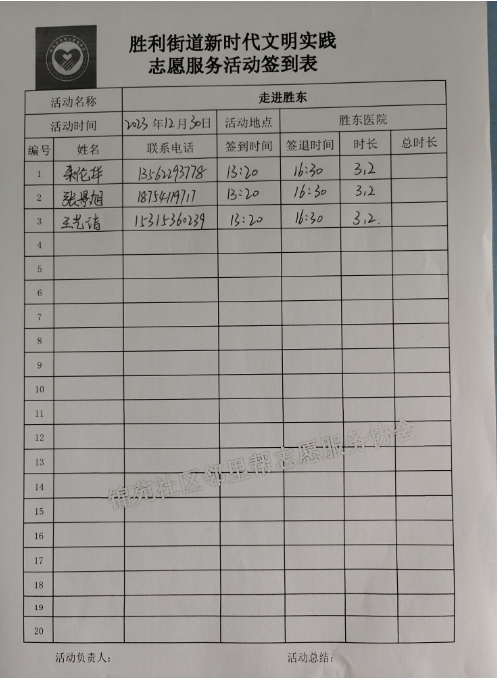 胜利街道新时代文明实践
志愿服务活动签到表
活动名称 走进胜东
活动时间 2023年12月30日 活动地点 胜东医院
编号 姓名 联系电话 签到时间 签退时间 时长 总时长
1 13562293778 13:20 16:30 3.2
2 张景旭 18754119717 13:20 16:30 3.2
3 王艺诺 15315360239 13:20 16:30 3.2
4
5
6
7
8
9
10
11
12
13
14
15
16
17
18
19
20
锦苑社区邻里帮志愿服务协会
活动负责人： 活动总结：